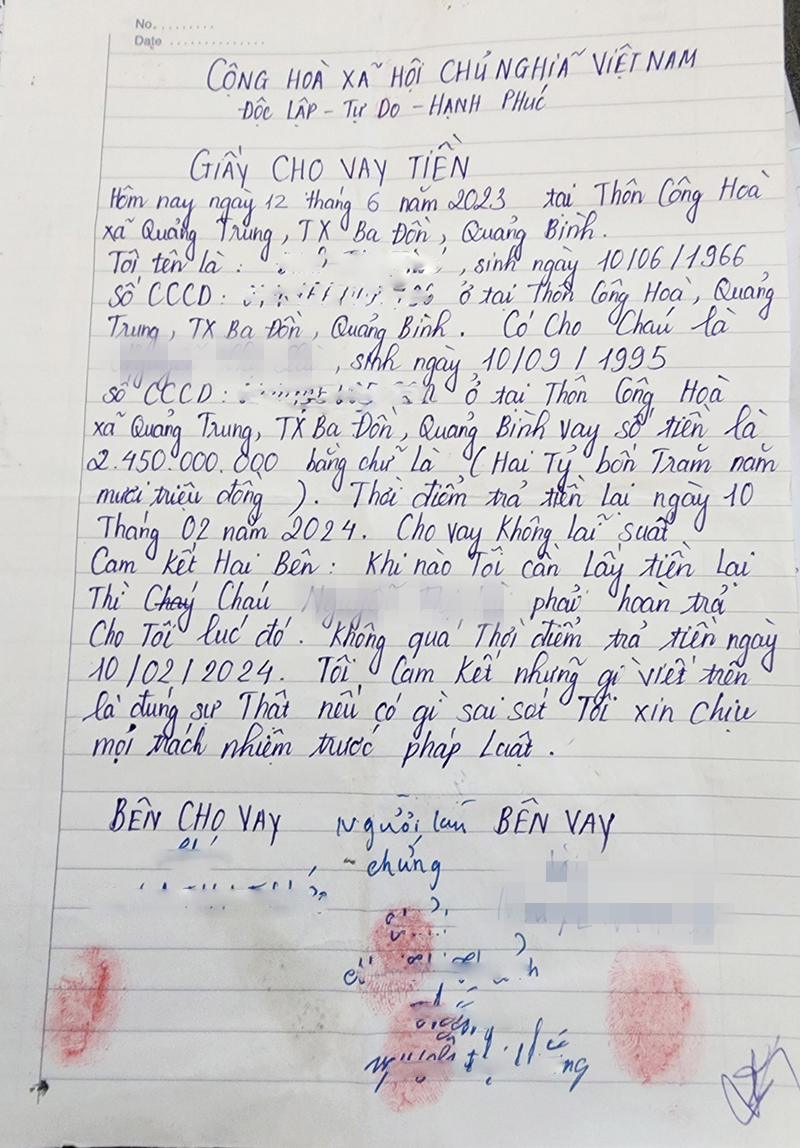 No. ........
Date ...............
CỘNG HOÀ XÃ HỘI CHỦ NGHĨA VIỆT NAM
ĐỘC LẬP - TỰ DO - HẠNH PHÚC
GIẤY CHO VAY TIỀN
Hôm nay ngày 12 tháng 6 năm 2023 tại Thôn Công Hoà
xã Quảng Trung, TX Ba Đồn, Quảng Bình.
Tôi tên là : , sinh ngày 10/06/1966
Số CCCD : ở tại Thôn Công Hoà, Quảng
Trung, TX Ba Đồn, Quảng Bình. Có Cho Cháu là
, sinh ngày 10/09/1995
số CCCD : ở tại Thôn Công Hoà
xã Quảng Trung, TX Ba Đồn, Quảng Bình vay số tiền là
2.450.000.000 bằng chữ là (Hai Tỷ bốn Trăm năm
mươi triệu đồng). Thời điểm trả tiền lại ngày 10
Tháng 02 năm 2024. Cho vay Không lãi suất
Cam kết Hai Bên : Khi nào Tôi cần Lấy tiền Lại
Thì Cháu phải hoàn trả
Cho Tôi lúc đó. Không quá Thời điểm trả tiền ngày
10/02/2024. Tôi Cam Kết những gì viết trên
là đúng sự Thật nếu có gì sai sót Tôi xin Chịu
mọi trách nhiệm trước pháp Luật.
BÊN CHO VAY Người làm BÊN VAY
chứng